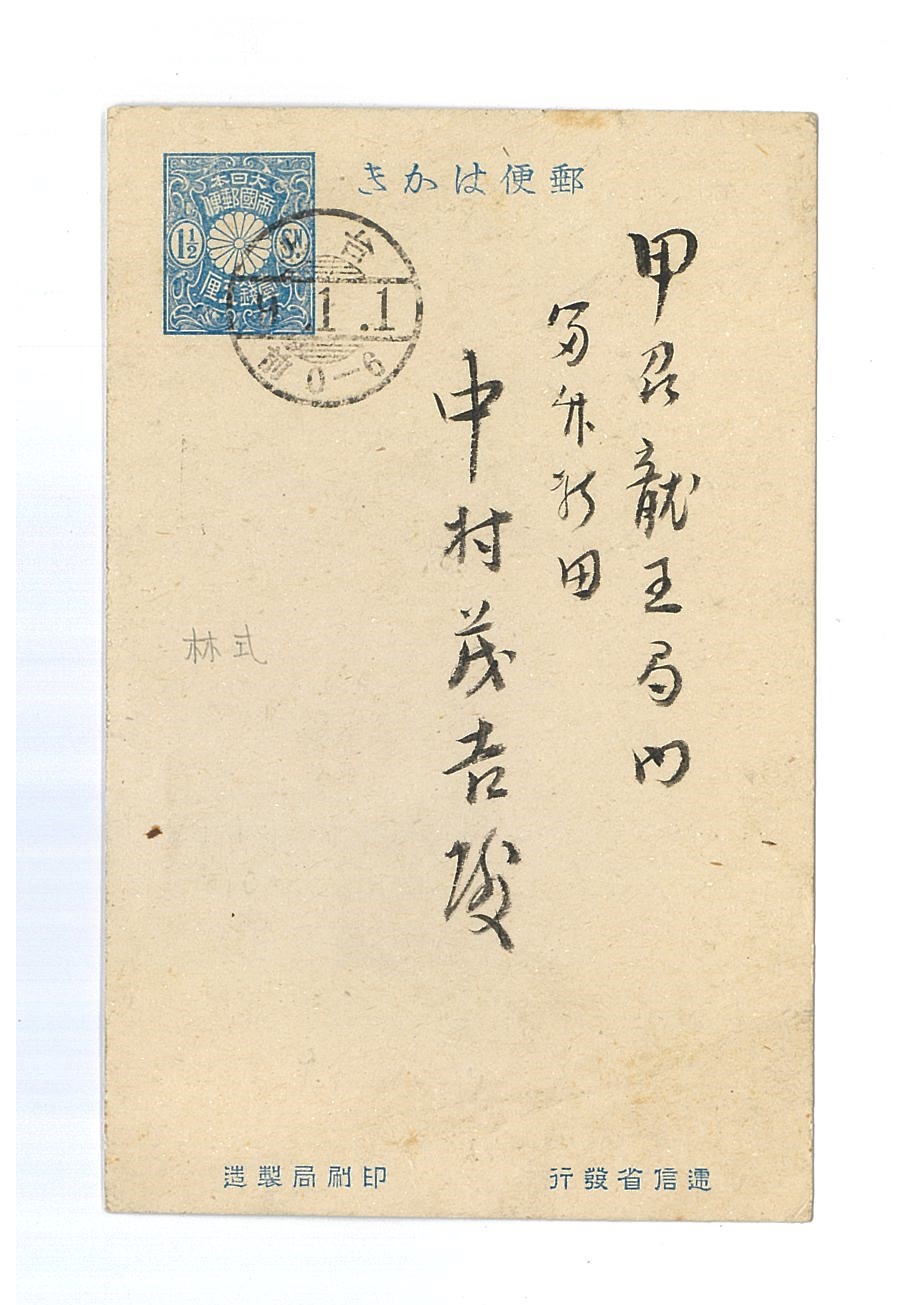 郵便はかき
大日本
帝國郵便
1½
Sn.
壹錢五厘
台
.1.1
前0-6
甲府龍王局内
富竹新田
中村茂吉殿
林式
逓信省發行
印刷局製造